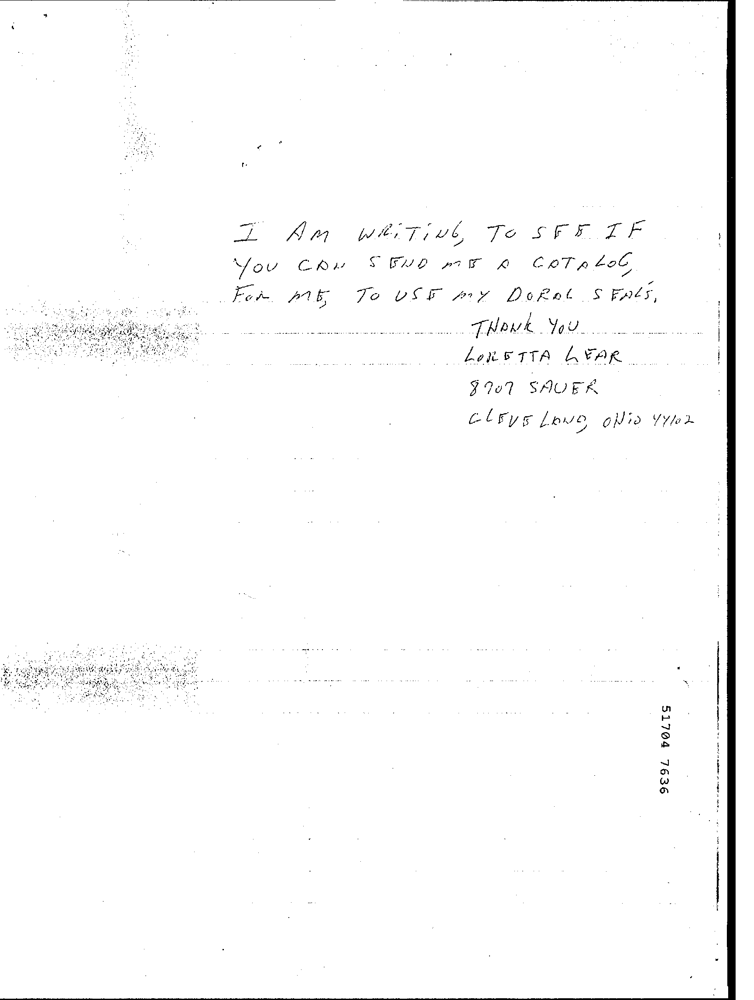 I AM WRiTiNG, TO SEE IF
YOU CAN SEND ME A CATALOG,
FOR ME, TO USE MY DORAL SEALS.
THANK YOU
LORETTA LEAR
8707 SAUER
CLEVELAND, OHiO 44102
51704 7636